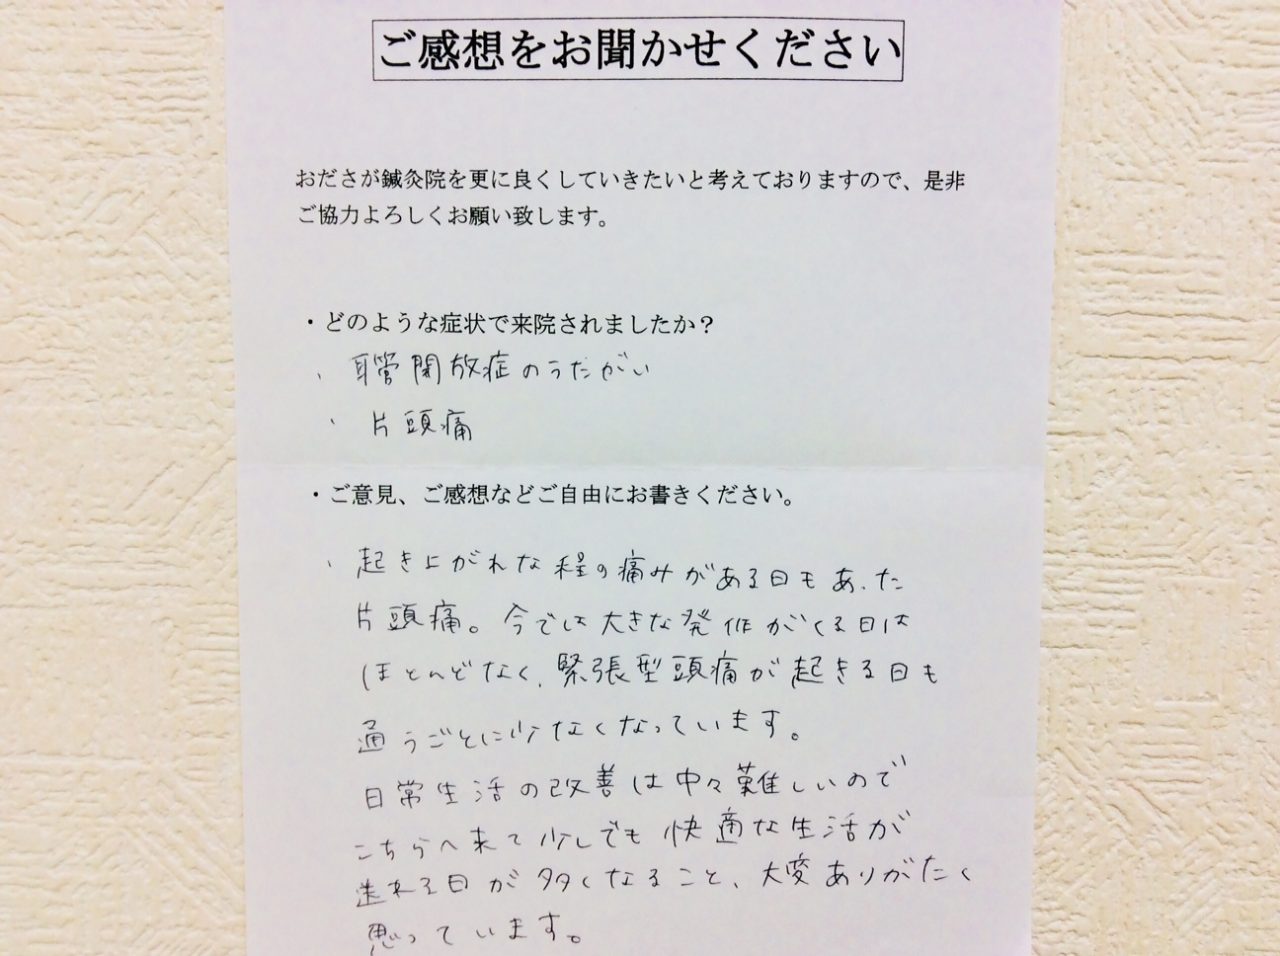 ご感想をお聞かせください
おださが鍼灸院を更に良くしていきたいと考えておりますので、是非
ご協力よろしくお願い致します。
・どのような症状で来院されましたか？
、耳管開放症のうたがい
、片頭痛
・ご意見、ご感想などご自由にお書きください。
、起き上がれな程の痛みがある日もあった
片頭痛。今では大きな発作がくる日は
ほとんどなく、緊張型頭痛が起きる日も
通うごとに少なくなっています。
日常生活の改善は中々難しいので
こちらへ来て少しでも快適な生活が
送れる日が多くなること、大変ありがたく
思っています。